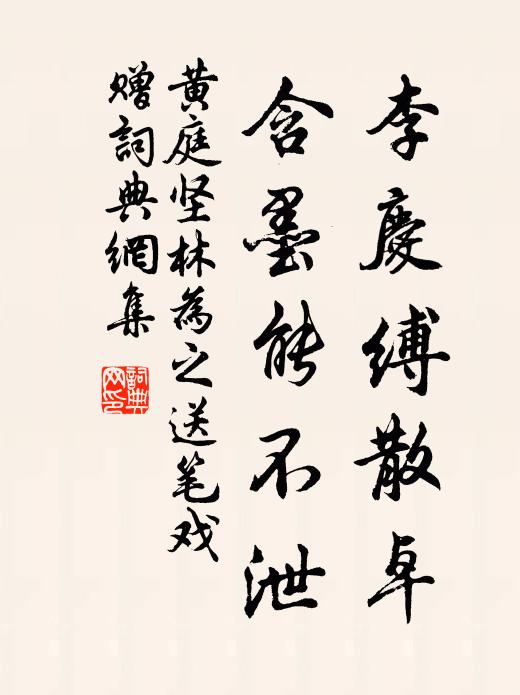 李慶縛散卓
含墨能不泄
黄庭坚林為之送笔戏
赠詞典網集
詞典网印